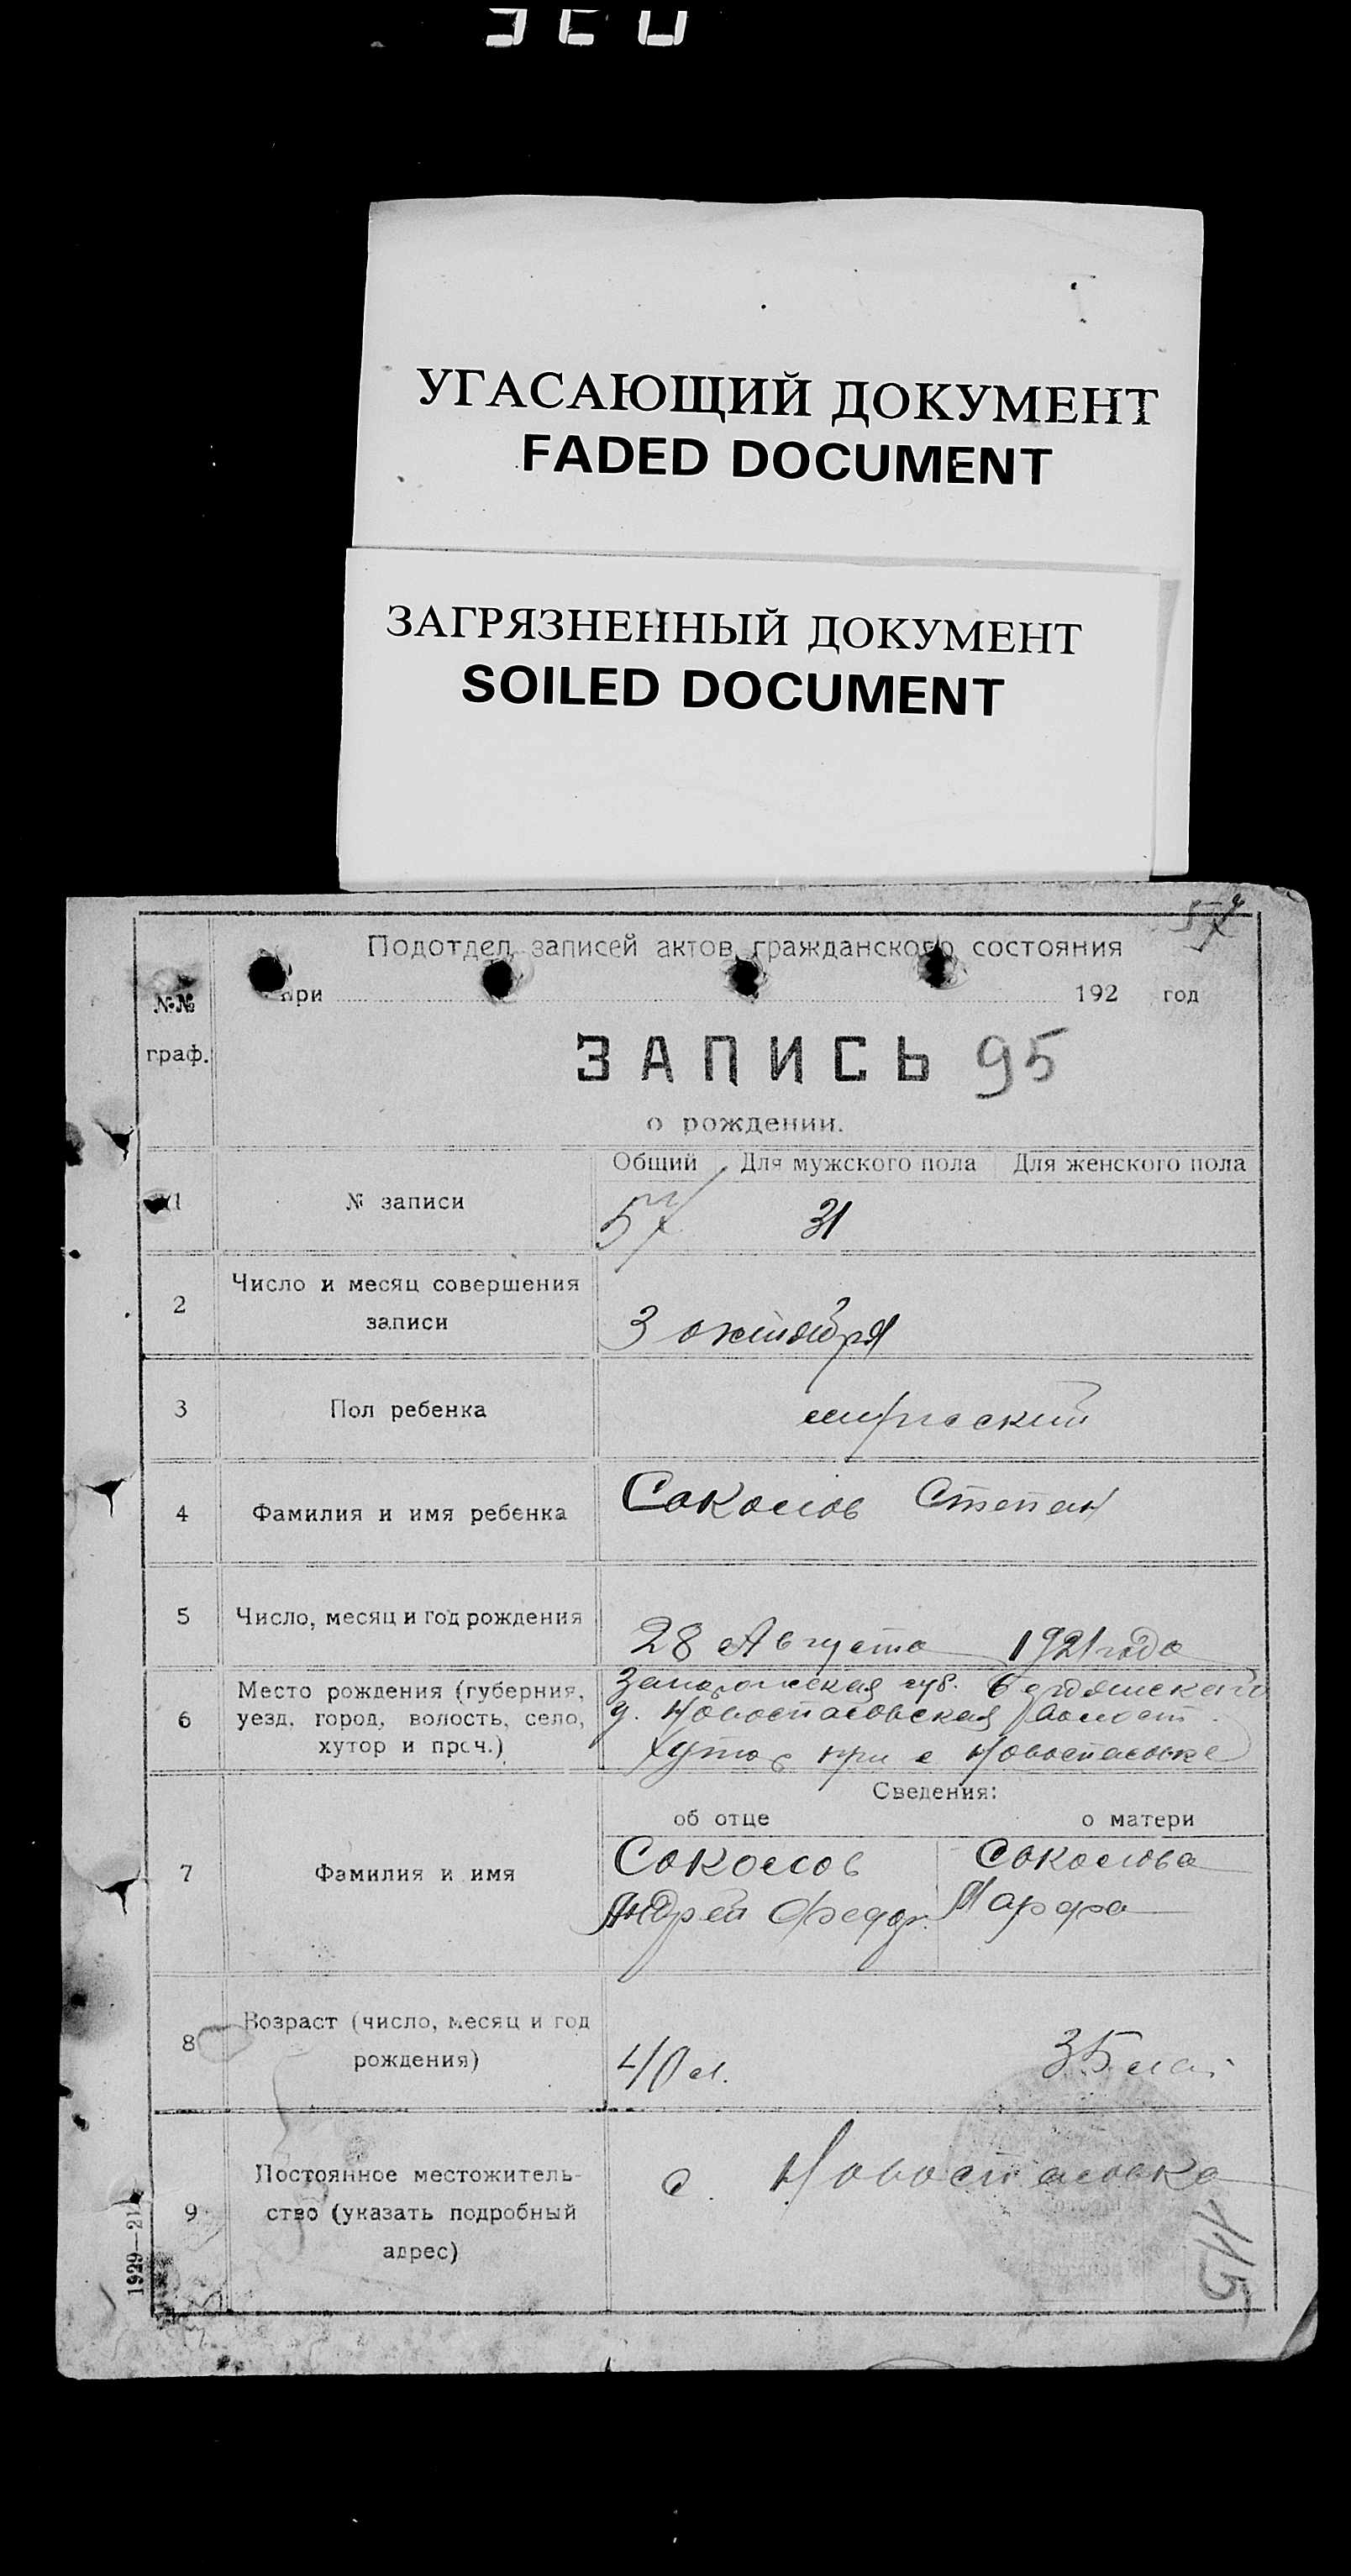 УГАСАЮЩИЙ ДОКУМЕНТ
FADED DOCUMENT
ЗАГРЯЗНЕННЫЙ ДОКУМЕНТ
SOILED DOCUMENT
57
Подотдел записей актов гражданского состояния
при 192 год
№№
граф.
ЗАПИСЬ 95
о рождении.
Общий Для мужского пола Для женского пола
1 № записи 57 31
2 Число и месяц совершения
записи
3 октября
3 Пол ребенка мужской
4 Фамилия и имя ребенка Соколов Степан
5 Число, месяц и год рождения 28 Августа 1921 года
6 Место рождения (губерния,
уезд, город, волость, село,
хутор и проч.)
Запорожская губ. Бердянского
у. Новоспасовская Волост.
Хутор при с Новоспасовке
Сведения:
об отце о матери
7 Фамилия и имя
Соколов Соколова
Андрей Федор. Марфа
8 Возраст (число, месяц и год
рождения)
40 л. 35 лет
9 Постоянное местожитель-
ство (указать подробный
адрес)
с. Новоспасовка
115
1929—21